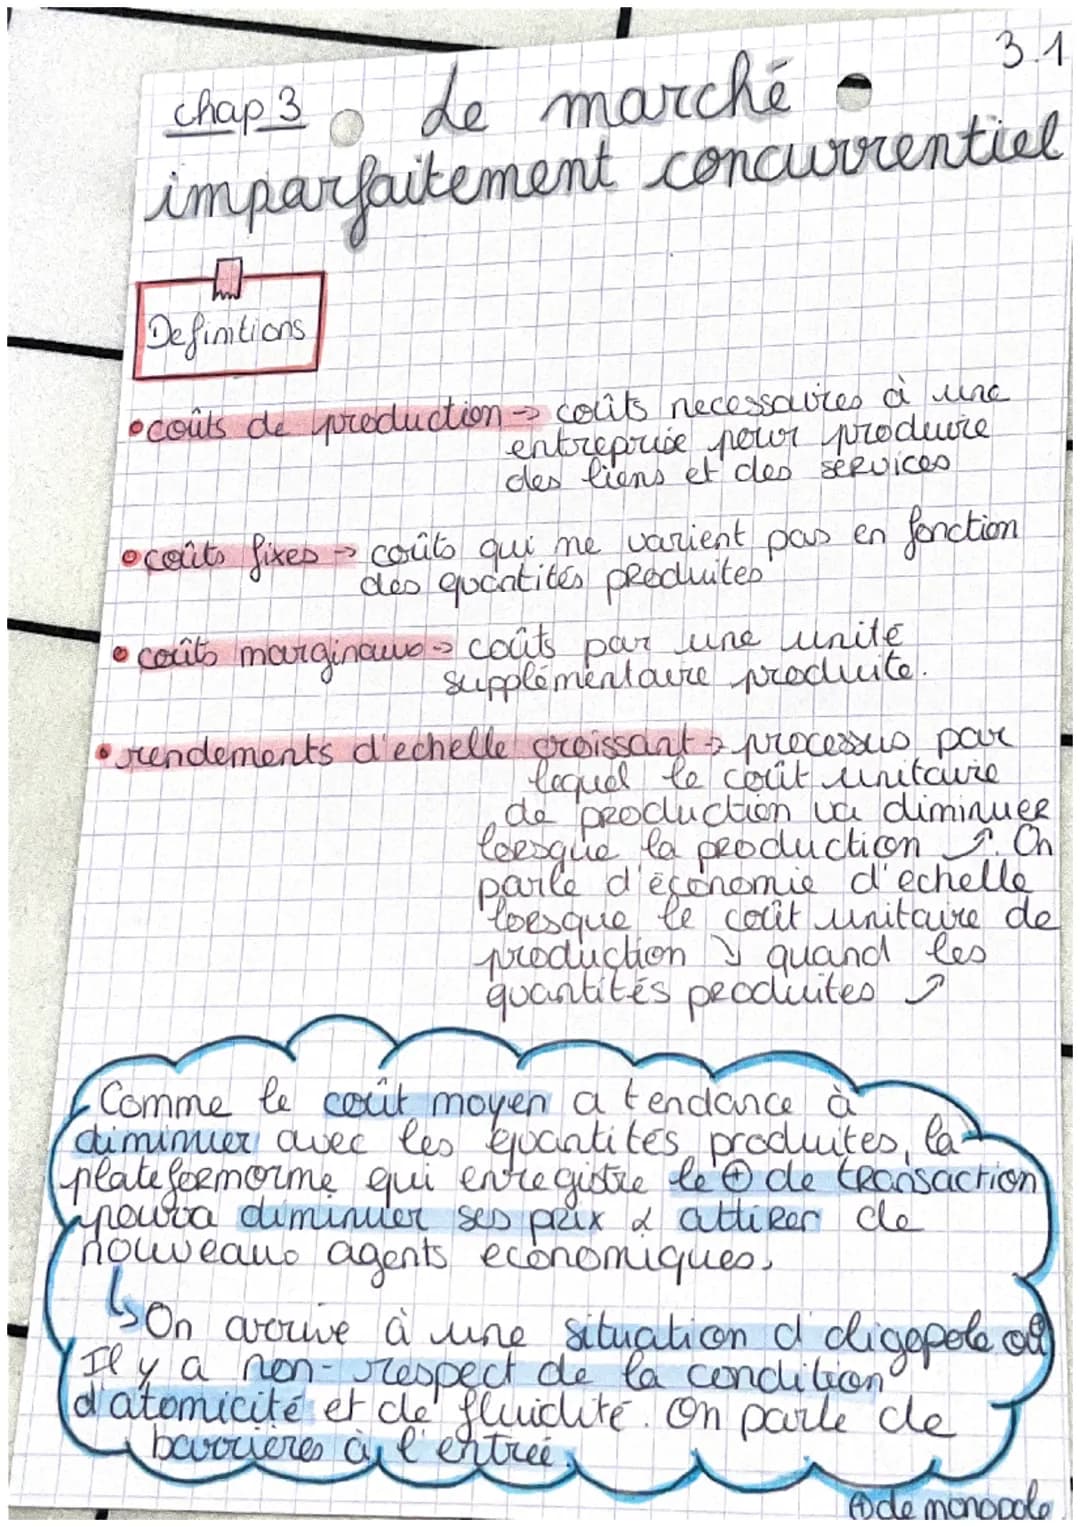 3.1
chap 3 Le marché
imparfaitement concurrentiel
Definitions
• coûts de production -> coûts necessaires à une
entreprise pour produire
des biens et des services
• coûts fixes -> coûts qui ne varient pas en fonction
des quantités produites
• coûts marginaux -> coûts par une unité
supplémentaire produite.
• rendements d'echelle croissant -> processus par
lequel le coût unitaire
de production va diminuer
lorsque la production ↗. On
parle d'économie d'echelle
lorsque le coût unitaire de
production ↘ quand les
quantités produites ↗
Comme le coût moyen a tendance à
diminuer avec les quantités produites, la
plateformorme qui enregistre le ⊕ de transaction
pourra diminuer ses prix & attirer de
nouveaux agents economiques,
↳ On arrive à une situation d'oligopole où
Il y a non-respect de la condition
d'atomicité et de fluidité. On parle de
barrières à l'entrée.
⊕ de monopole.